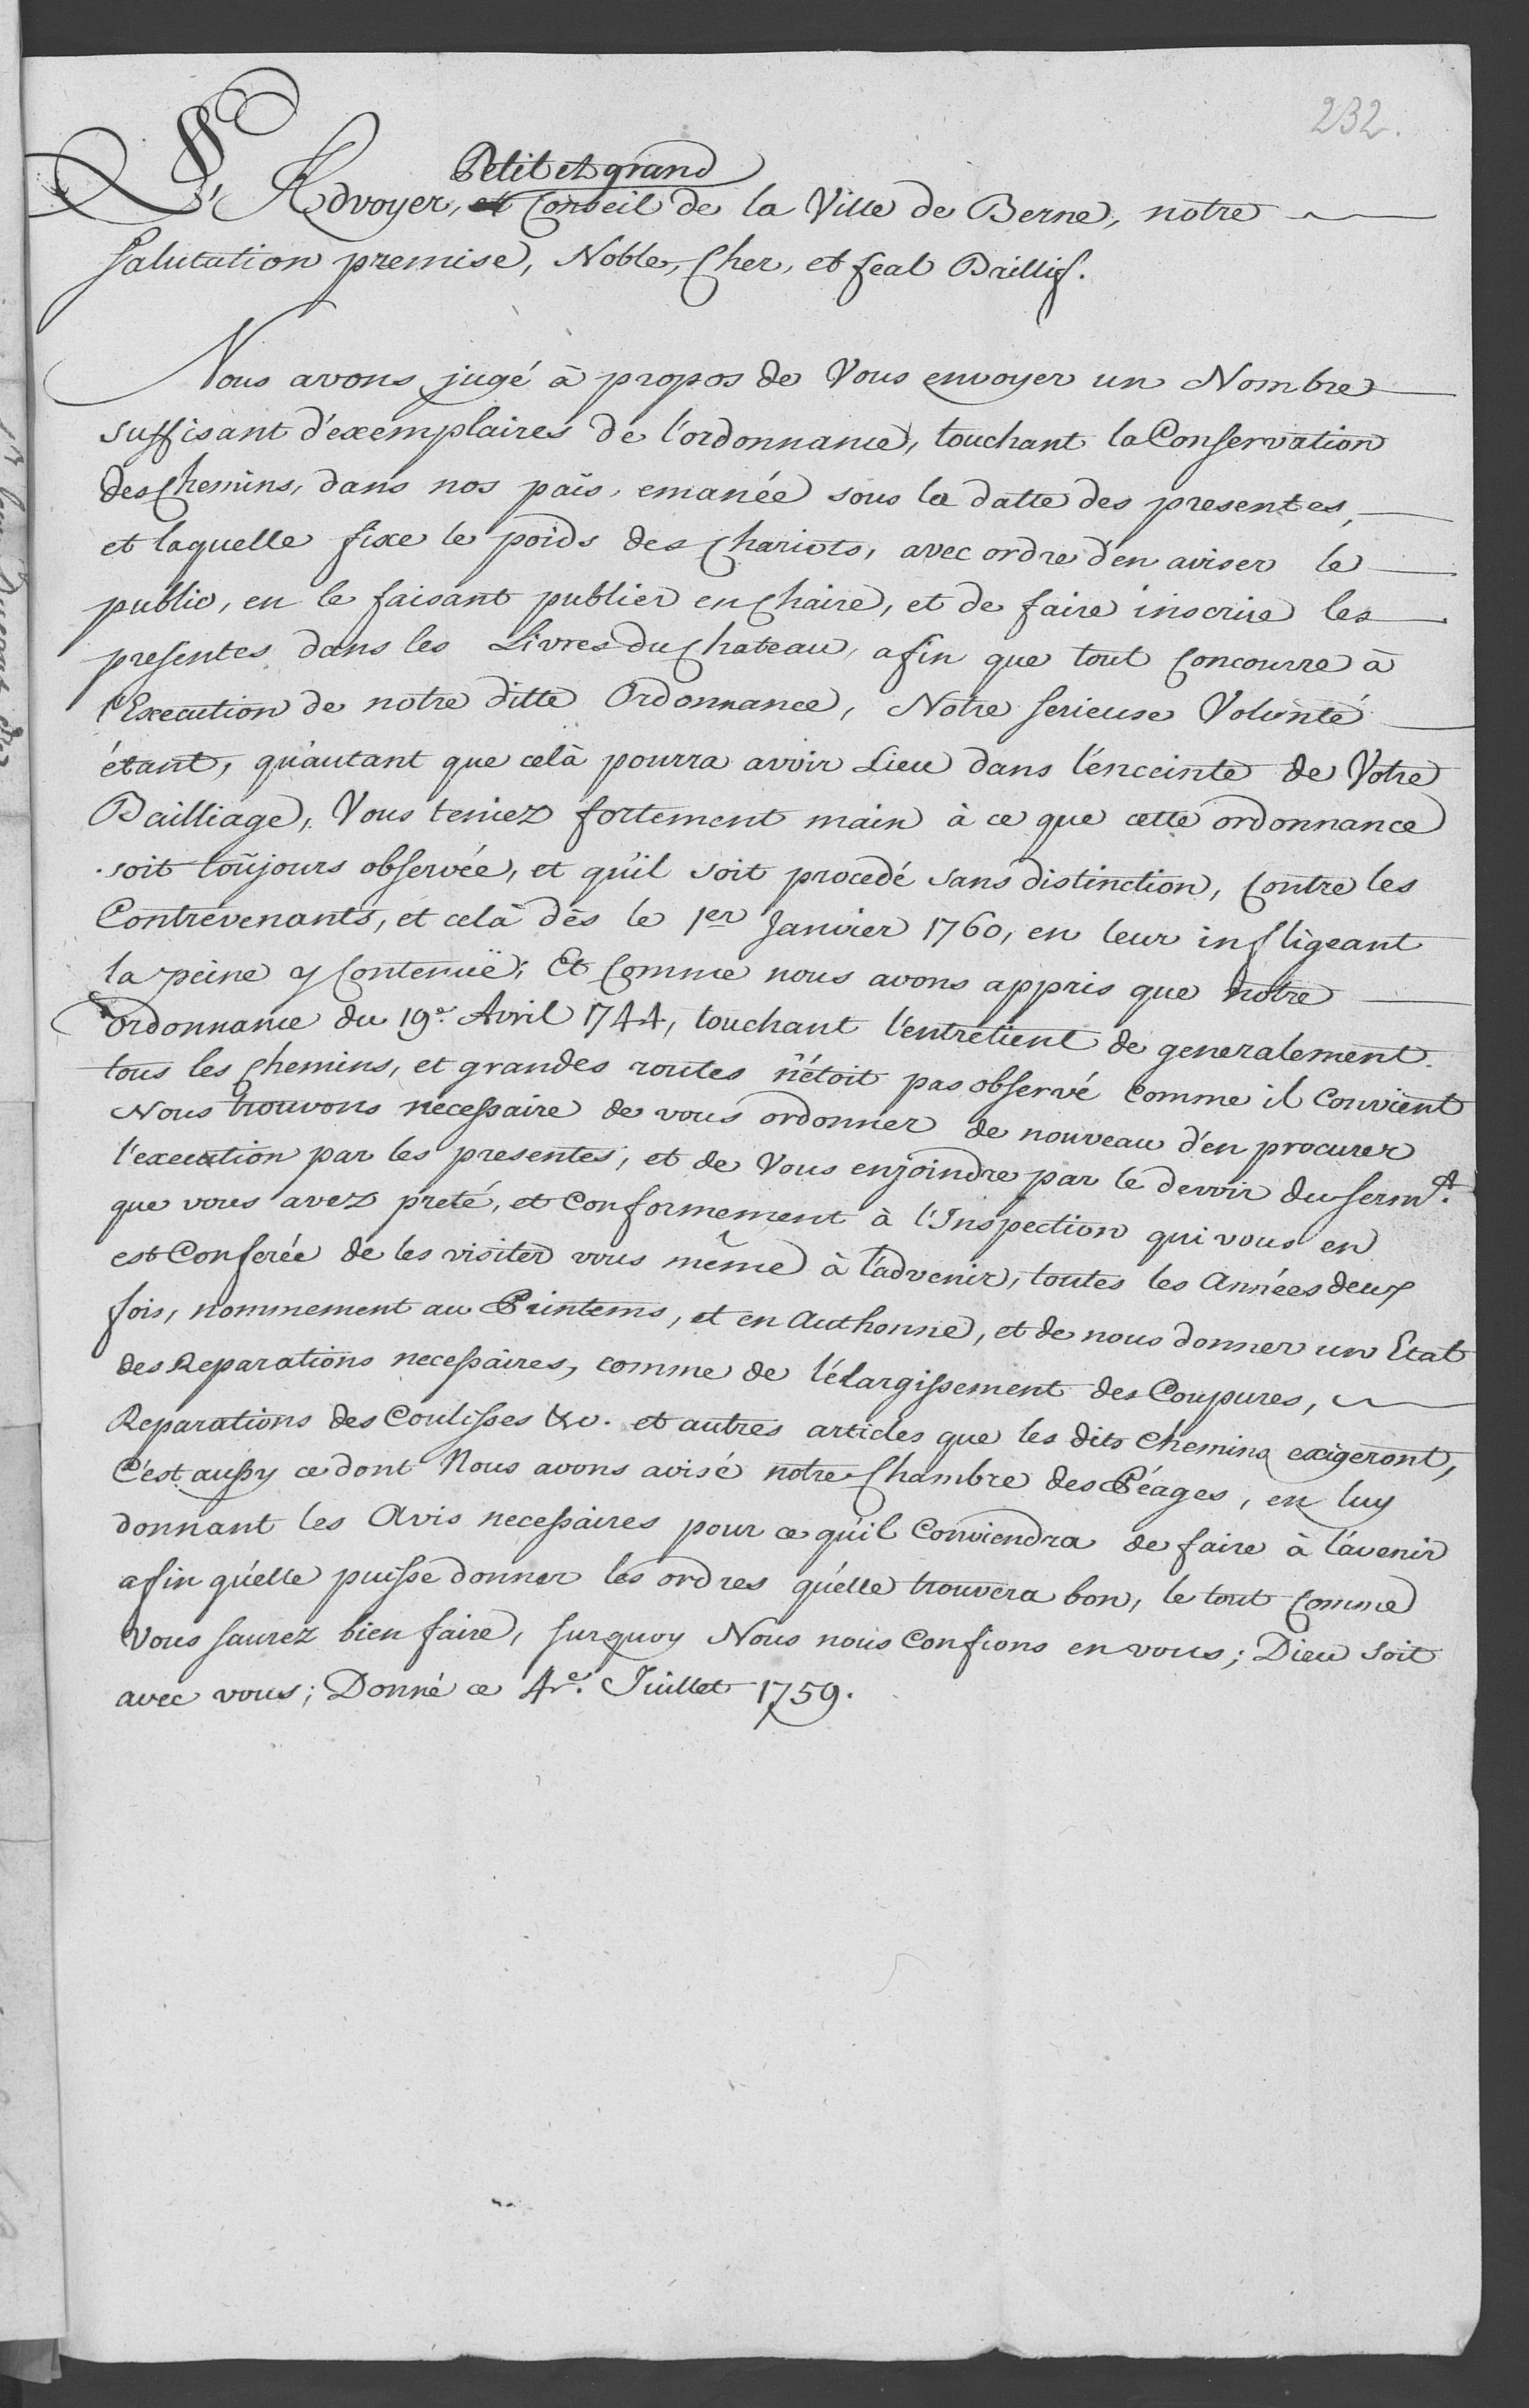 232.
L'Advoyer, Petit et grand Conseil de la Ville de Berne, notre
Salutation premise, Noble, Cher, et feal Baillif.
Nous avons jugé à propos de Vous envoyer un Nombre
suffisant d'exemplaires de l'ordonnance, touchant la Conservation
des Chemins, dans nos païs, emanée sous la datte des presentes,
et laquelle fixe le poids des Chariots, avec ordre d'en aviser le
public, en le faisant publier en Chaire, et de faire inscrire les
presentes dans les Livres du Chateau, afin que tout Concourre à
l'Execution de notre ditte Ordonnance, Notre serieuse Volonté
étant, qu'autant que celà pourra avoir Lieu dans l'énceinte de Votre
Bailliage, Vous teniez fortement main à ce que cette ordonnance
soit toûjours observée, et qu'il soit procedé sans distinction, Contre les
Contrevenants, et celà dès le 1er Janvier 1760, en leur infligeant
la peine y Contenuë; Et Comme nous avons appris que notre
ordonnance du 19e. Avril 1744, touchant l'entretient de generalement
tous les Chemins, et grandes routes n'étoit pas observé comme il Convient
Nous trouvons necessaire de vous ordonner de nouveau d'en procurer
l'execution par les presentes, et de Vous enjoindre par le devoir du serm.t
que vous avez preté, et Conformement à l'Inspection qui vous en
est Conferée de les visiter vous même à l'advenir, toutes les Années deux
fois, nommement au Printems, et en Authonne, et de nous donner un Etat
des Reparations necessaires, comme de l'élargissement des Coupures,
Reparations des Coulisses &c. et autres articles que les dits Chemins exigeront,
C'est aussy ce dont Nous avons avisé notre Chambre des Péages, en luy
donnant les Avis necessaires pour ce qu'il Conviendra de faire à l'avenir
afin qu'elle puisse donner les ordres qu'elle trouvera bon, le tout Comme
Vous saurez bien faire, surquoy Nous nous Confions en vous; Dieu soit
avec vous; Donné ce 4e. Juillet 1759.